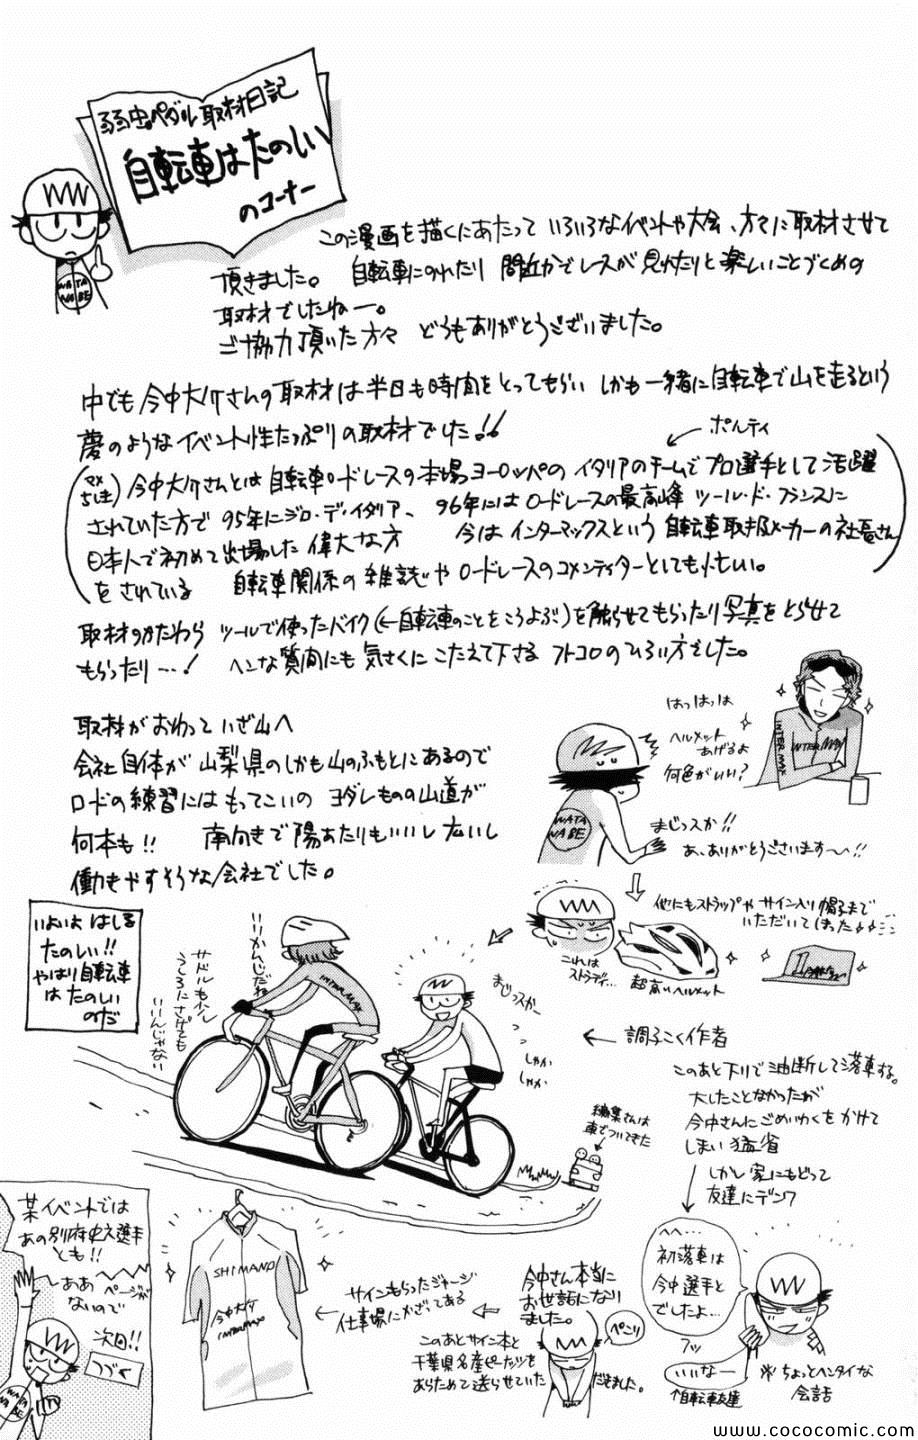 弱虫ペダル取材日記
自転車はたのしい
のコーナー
WATA
NABE
この漫画を描くにあたって いろいろなイベントや大会、方々に取材させて
頂きました。 自転車にのれたり 間近かでレースが見れたりと楽しいことづくめの
取材でしたねー。
ご協力頂いた方々 どうもありがとうございました。
中でも今中大介さんの取材は半日も時間をとってもらい しかも一緒に自転車で山を走るという
夢のようなイベント性たっぷりの取材でした!!
ポルティ
(マメちしき) 今中大介さんとは自転車ロードレースの本場ヨーロッパのイタリアのチームでプロ選手として活躍
されていた方で 95年にジロ・デ・イタリア、 96年にはロードレースの最高峰 ツール・ド・フランスに
日本人で初めて出場した偉大な方 今はインターマックスという自転車取扱メーカーの社長さん
をされている 自転車関係の雑誌やロードレースのコメンティターとしても忙しい。
取材のかたわら ツールで使ったバイク(←自転車のことをこうよぶ)を触らせてもらったり写真をとらせて
もらったり…! ヘンな質問にも気さくにこたえて下さる フトコロのひろい方でした。
取材がおわって いざ山へ
会社自体が山梨県のしかも山のふもとにあるので
ロードの練習にはもってこいの ヨダレものの山道が
何本も!! 南向きで陽あたりもいいし広いし
働きやすそうな会社でした。
はっはっは
ヘルメット
あげるよ
何色がいい?
INTERMAX
INTERMAX
WATA
NABE
まじっスか!!
あ、ありがとうございます〜〜!!
他にもストラップやサイン入り帽子まで
いただいてしまった
これは
ストラディ…
超高いヘルメット
いよいよはしる
たのしい!!
やはり自転車
はたのしい
のだ
いいかんじだね
サドルもう少し
うしろにさげても
いいんじゃない
INTERMAX
まじっスかー
しゃか
しゃか
← 調子こく作者
このあと下りで油断して落車する。
大したことなかったが
今中さんにごめいわくをかけて
しまい猛省
しかし家にもどって
友達にデンワ
編集さんは
車でついてきた
へへ…
初落車は
今中選手と
でしたよ…
フッ
いいなー
↑自転車友達
※ちょっとヘンタイな
会話
今中さん本当に
お世話になり
ました。
ペこり
このあとサイン本と
千葉県名産ピーナッツを
あらためて送らせていただきました。
サインもらったジャージ
仕事場にかざってある
SHIMANO
今中大介
INTERMAX
某イベントでは
あの別府史之選手
とも!!
ああ ページが
ないので
次回!!
つづく
WATA
NABE
www.cococomic.com